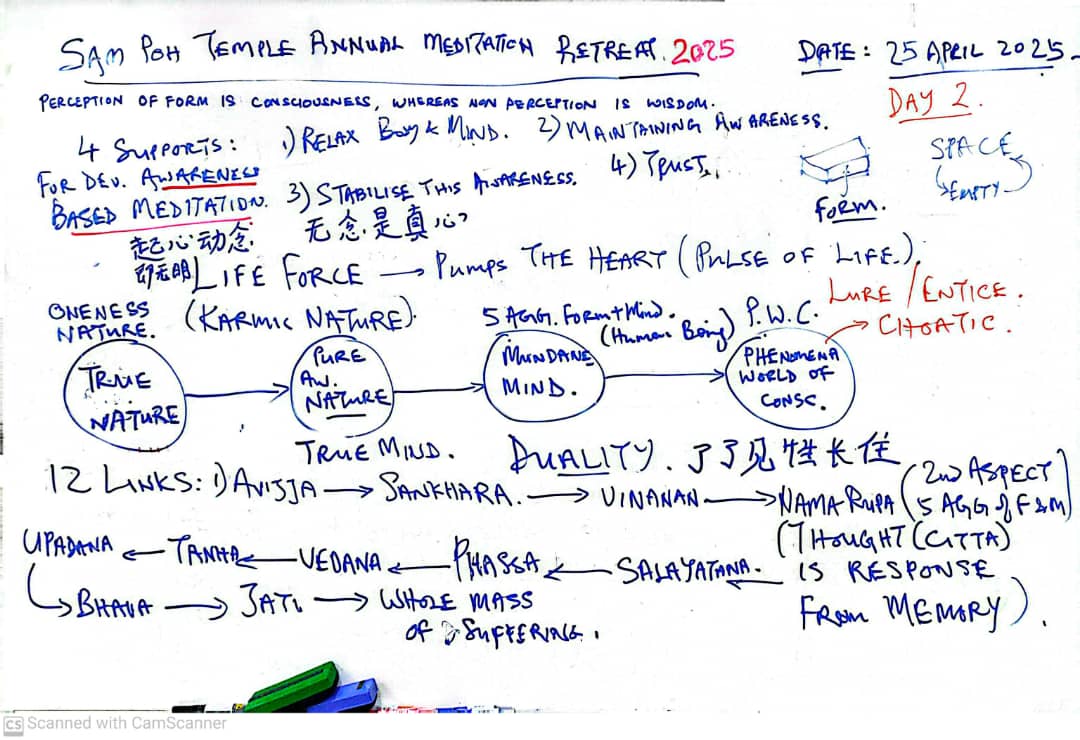 SAM POH TEMPLE ANNUAL MEDITATION RETREAT. 2025
DATE: 25 APRIL 2025.
DAY 2.
PERCEPTION OF FORM IS CONSCIOUSNESS, WHEREAS NON PERCEPTION IS WISDOM.
4 SUPPORTS: 1) RELAX BODY & MIND. 2) MAINTAINING AWARENESS.
FOR DEV. AWARENESS
BASED MEDITATION.
3) STABILISE THIS AWARENESS. 4) TRUST.
SPACE
EMPTY
FORM.
起心动念
即无明
无念是真心?
LIFE FORCE → PUMPS THE HEART (PULSE OF LIFE).
LURE / ENTICE.
CHOATIC.
ONENESS
NATURE.
(KARMIC NATURE).
5 AGG. FORM + Mind.
(Human Being)
P.W.C.
TRUE
NATURE
PURE
AW.
NATURE
MUNDANE
MIND.
PHENOMENA
WORLD OF
CONSC.
TRUE MIND.
DUALITY. 了了见性长住
12 LINKS: 1) AVIJJA → SANKHARA. → VINANAN → NAMA RUPA (2nd ASPECT
5 AGG of F & M)
(THOUGHT (CITTA)
IS RESPONSE
FROM MEMORY).
UPADANA ← TANHA ← VEDANA ← PHASSA ← SALAYATANA.
BHAVA → JATI → WHOLE MASS
OF SUFFERING.
CS Scanned with CamScanner